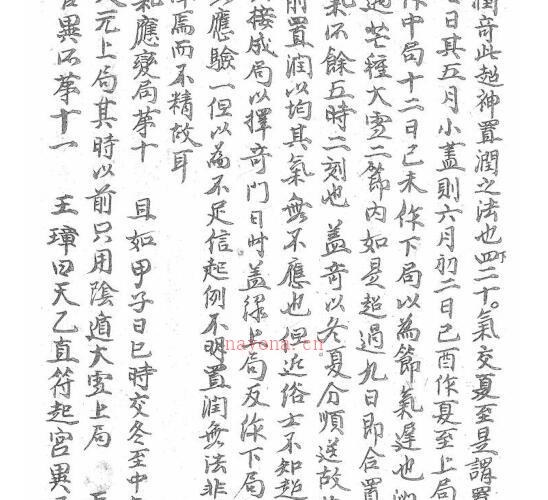 潤奇此超神置潤之法也四二十。氣交夏至是謂置
日其五月小盖則六月初二日己酉作夏至上局
作中局十二日己未作下局以為節氣遲也
過芒種大雪二節内如是超過九日即合置
氣你餘五時二刻也 盖奇以冬夏分順逆故
前置潤以均其氣無不應也但近俗士不知超
接成局以擇奇門日时盖緣上局反作下局
應驗一但以為不足信起例不明置潤無法非
擇焉而不精故耳
氣應變局第十 且如甲子日巳時交冬至中
元上局其時以前只用陰遁大雪上局
宫異不第十一 王璋曰天乙直符起宮異
nayona.cn